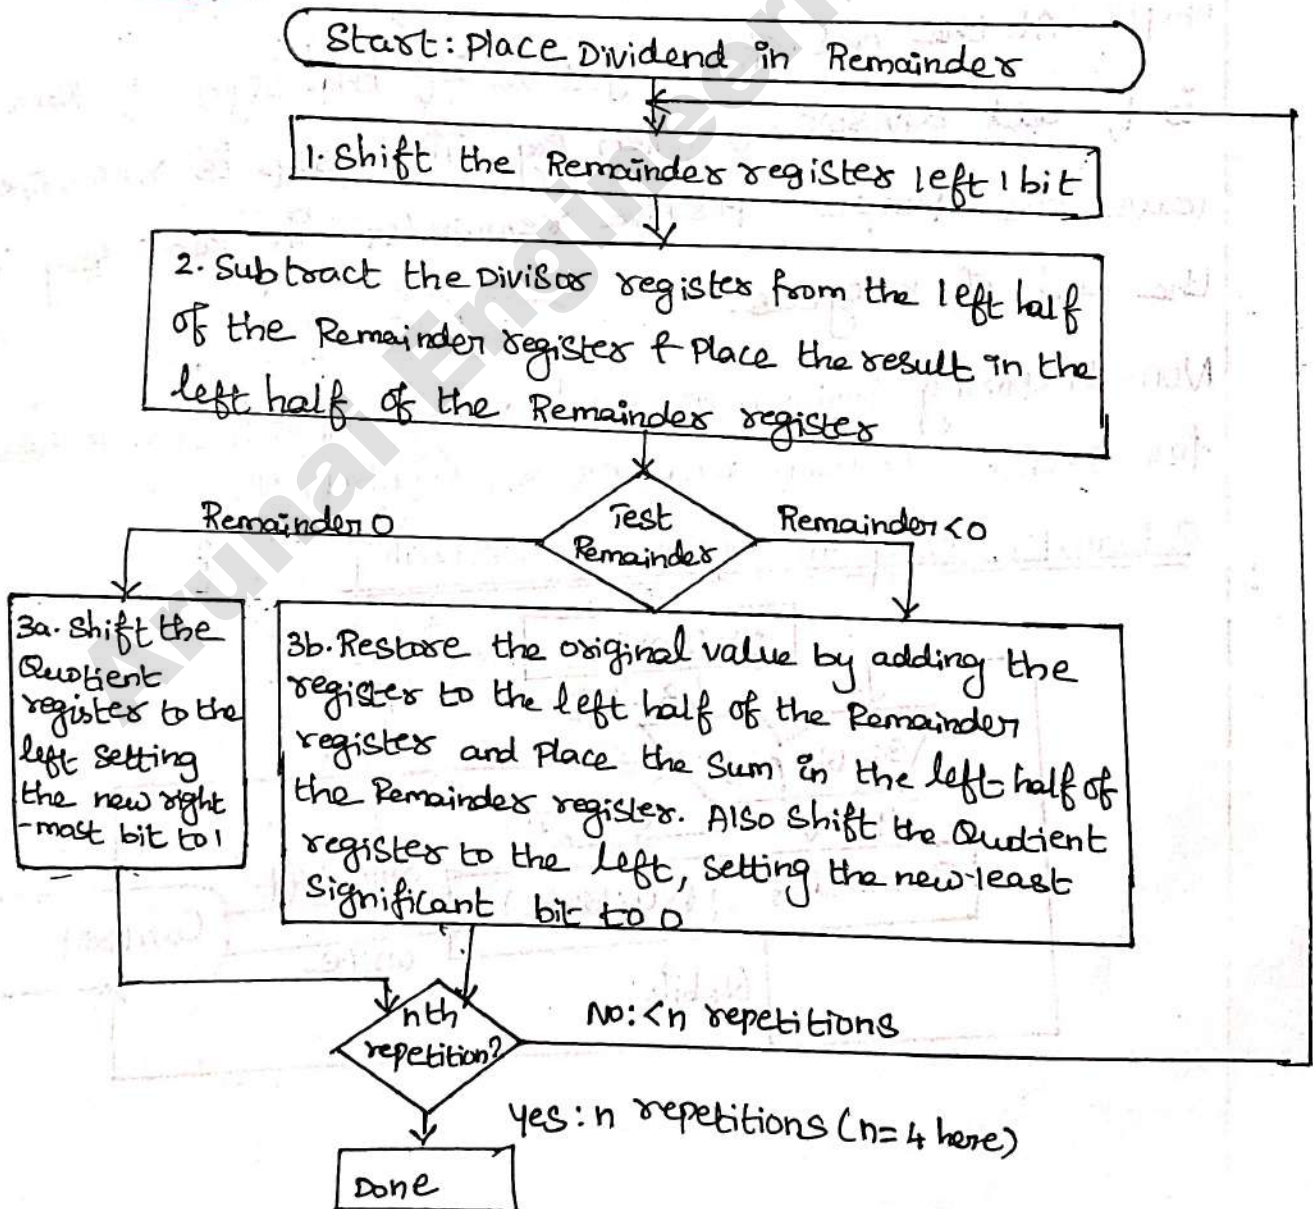 Start: Place Dividend in Remainder
1. Shift the Remainder register left 1 bit
2. Subtract the Divisor register from the left half
of the Remainder register & Place the result in the
left half of the Remainder register
Test
Remainder
Remainder 0
Remainder <0
3a. Shift the
Quotient
register to the
left setting
the new right
-most bit to 1
3b. Restore the original value by adding the
register to the left half of the Remainder
register and Place the Sum in the left half of
the Remainder register. Also Shift the Quotient
register to the left, setting the new least
significant bit to 0
nth
repetition?
No: <n repetitions
Yes: n repetitions (n=4 here)
Done
Arunai Engineeri